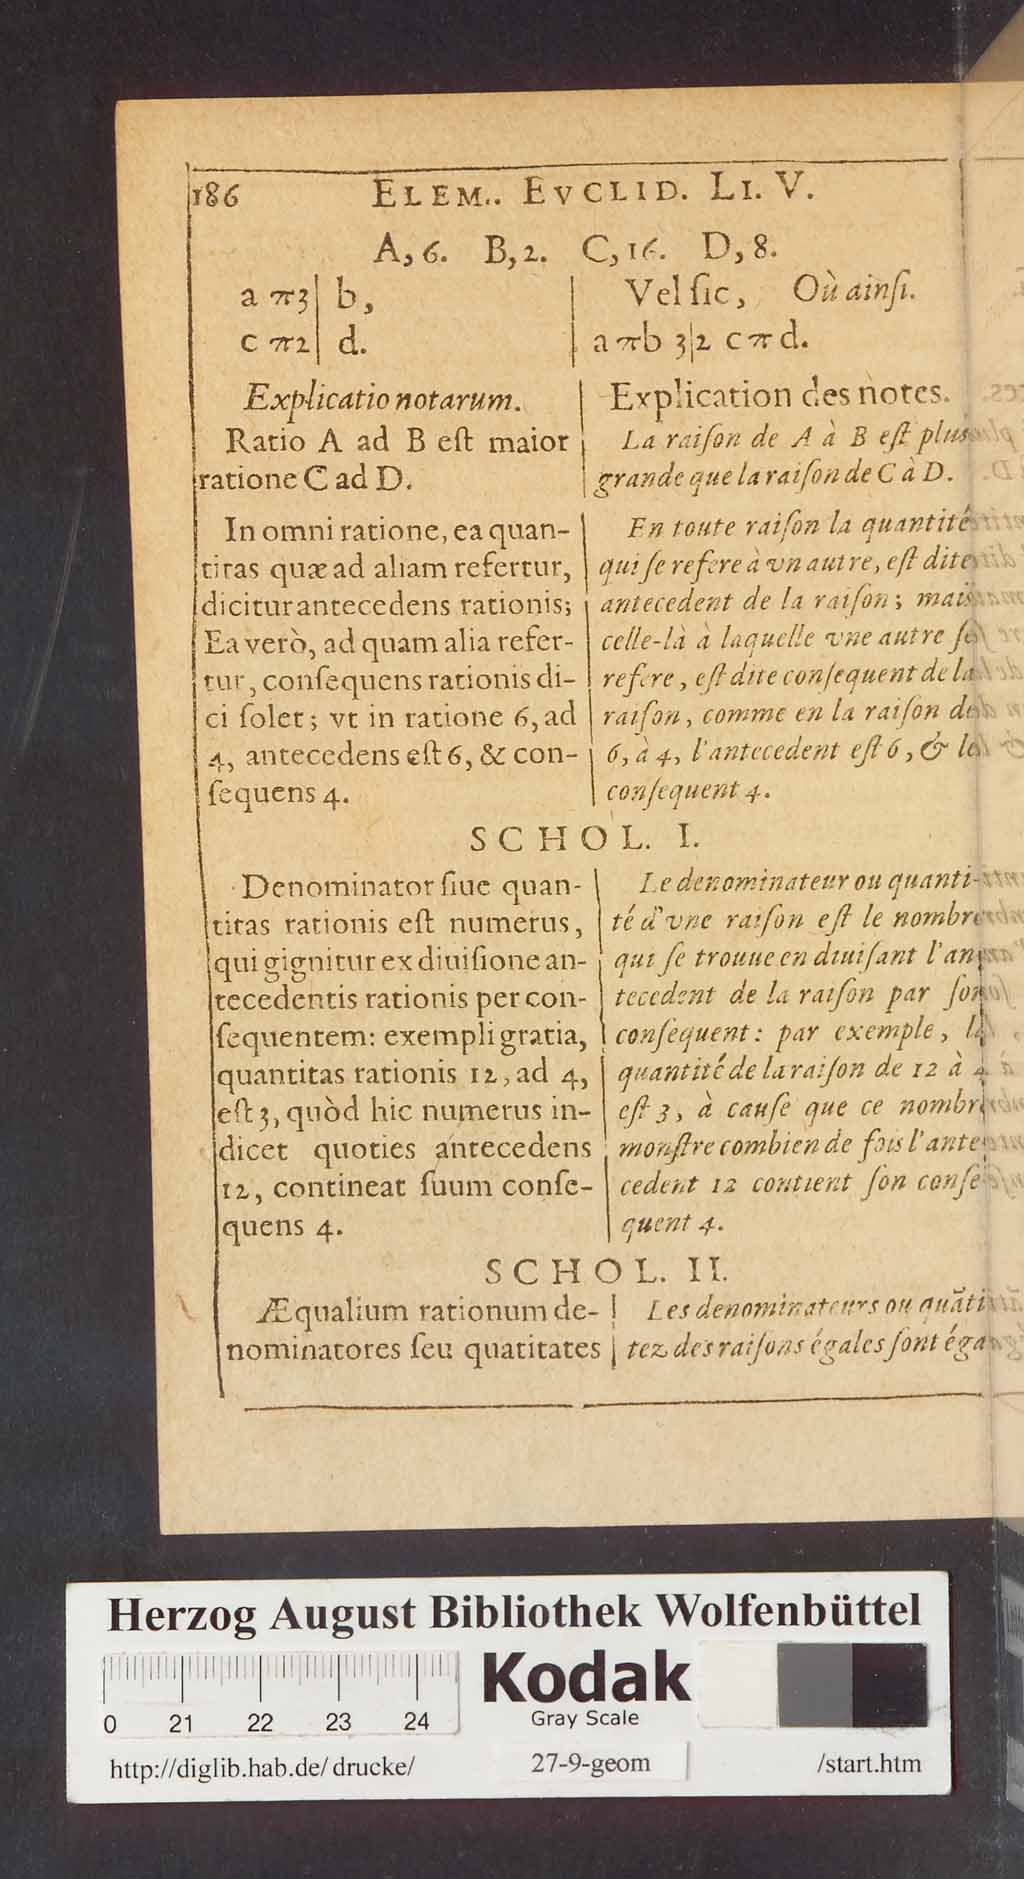 186 ELEM.. EVCLID. LI. V.
A, 6. B, 2. C, 16. D, 8.
a π3| b,
c π2| d.
Vel ſic, Où ainſi.
a π b 3|2 c π d.
Explicatio notarum.
Ratio A ad B eſt maior
ratione C ad D.
In omni ratione, ea quan-
titas quæ ad aliam refertur,
dicitur antecedens rationis;
Ea verò, ad quam alia refer-
tur, conſequens rationis di-
ci ſolet; vt in ratione 6, ad
4, antecedens eſt 6, & con-
ſequens 4.
Explication des notes.
La raiſon de A à B eſt plus
grande que la raiſon de C à D.
En toute raiſon la quantité
qui ſe refere à vn autre, eſt dite
antecedent de la raiſon; mais
celle-là à laquelle vne autre ſe
refere, eſt dite conſequent de la
raiſon, comme en la raiſon de
6, à 4, l'antecedent eſt 6, & le
conſequent 4.
SCHOL. I.
Denominator ſiue quan-
titas rationis eſt numerus,
qui gignitur ex diuiſione an-
tecedentis rationis per con-
ſequentem: exempli gratia,
quantitas rationis 12, ad 4,
eſt 3, quòd hic numerus in-
dicet quoties antecedens
12, contineat ſuum conſe-
quens 4.
Le denominateur ou quanti-
té d'vne raiſon eſt le nombre
qui ſe trouue en diuiſant l'an-
tecedent de la raiſon par ſon
conſequent: par exemple, la
quantité de la raiſon de 12 à 4
eſt 3, à cauſe que ce nombre
monſtre combien de fois l'ante-
cedent 12 contient ſon conſe-
quent 4.
SCHOL. II.
Æqualium rationum de-
nominatores ſeu quatitates
Les denominateurs ou quãti-
tez des raiſons égales ſont éga-
Herzog August Bibliothek Wolfenbüttel
0 21 22 23 24
Kodak
Gray Scale
http://diglib.hab.de/drucke/ 27-9-geom /start.htm